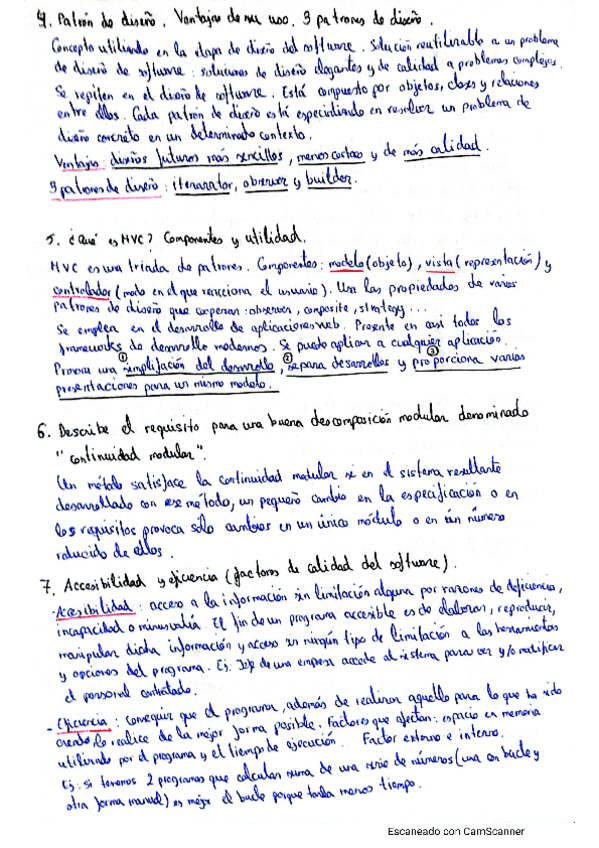 4. Patrón de diseño. Ventajas de su uso. 3 patrones de diseño.
Concepto utilizado en la etapa de diseño del software. Solución reutilizable a un problema
de diseño de software: soluciones de diseño elegantes y de calidad a problemas complejos.
Se repiten en el diseño de software. Está compuesto por objetos, clases y relaciones
entre ellos. Cada patrón de diseño está especializado en resolver un problema de
diseño concreto en un determinado contexto.
Ventajas: diseños futuros más sencillos, menos costoso y de más calidad.
3 patrones de diseño: itenarator, observer y builder.
5. ¿Qué es MVC? Componentes y utilidad.
MVC es una triada de patrones. Componentes: modelo (objeto), vista (representación) y
controlador (modo en el que reacciona el usuario). Usa las propiedades de varios
patrones de diseño que cooperan: observer, composite, strategy...
Se emplea en el desarrollo de aplicaciones web. Presente en casi todos los
frameworks de desarrollo modernos. Se puede aplicar a cualquier aplicación.
Provoca una ① simplifación del desarrollo, ② separa desarrollos y ③ proporciona varias
presentaciones para un mismo modelo.
6. Describe el requisito para una buena descomposición modular denominado
"continuidad modular".
Un método satisface la continuidad modular si en el sistema resultante
desarrollado con ese método, un pequeño cambio en la especificación o en
los requisitos provoca sólo cambios en un único módulo o en un número
reducido de ellos.
7. Accesibilidad y eficiencia (factores de calidad del software).
- Accesibilidad: acceso a la información sin limitación alguna por razones de deficiencia,
incapacidad o minusvalía. El fin de un programa accesible es de elaborar, reproducir,
manipular dicha información y acceso sin ningún tipo de limitación a las herramientas
y opciones del programa. Ej: Jefe de una empresa accede al sistema para ver y/o modificar
el personal contratado.
- Eficiencia: conseguir que el programa, además de realizar aquello para lo que ha sido
creado, lo realice de la mejor forma posible. Factores que afectan: espacio en memoria
utilizado por el programa y el tiempo de ejecución. Factor externo e interno.
Ej: si tenemos 2 programas que calculan suma de una serie de números (una con bucle y
otra forma manual) es mejor el bucle porque tarda menos tiempo.
Escaneado con CamScanner